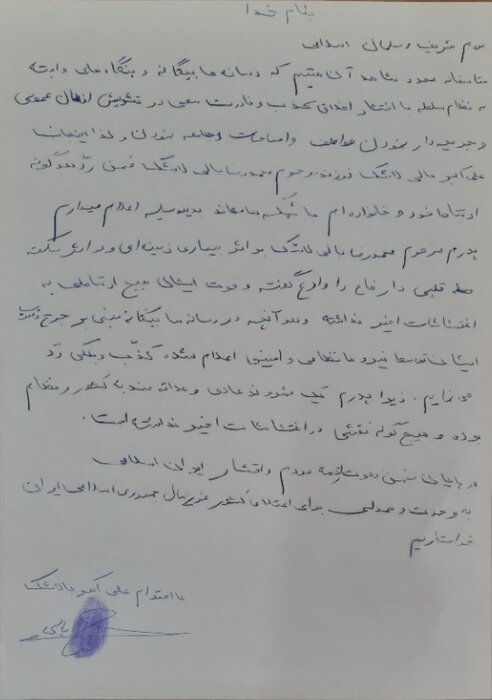 بنام خدا
مردم شریف و مسلمان اسلامی
متاسفانه شاهد آن هستیم که رسانه ها بیگانه و بنگاه های وابسته
به نظام سلطه با انتشار اخبار کذب و نادرست سعی در تشویش اذهان عمومی
و جریحه دار نمودن عواطف و احساسات جامعه نمودن و لذا اینجانب
علی اکبر مالی لاشک فرزند مرحوم محمدرضا مالی لاشک ضمن رد هرگونه
ارتباط خود و خانواده ام با شبکه بدینوسیله اعلام میدارم
پدرم مرحوم محمدرضا مالی لاشک بر اثر بیماری زمینه ای و در اثر سکته
قلبی دار فانی را وداع گفته و فوت ایشان هیچ ارتباطی به
اغتشاشات اخیر نداشته و هر آنچه در رسانه ها بیگانه مبنی بر
ایشان توسط نیرو ها نظامی و امنیتی اعلام شده کذب و بکلی رد
می نمایم. زیرا پدرم یک شهروند عادی و علاقه مند به کشور و نظام
بوده و هیچ گونه نقشی در اغتشاشات اخیر نداشته است.
در پایان ضمن دعوت همه مردم و اقشار ایران اسلامی
به وحدت و همدلی برای اعتلای کشور جمهوری اسلامی ایران
خواستاریم
با احترام علی اکبر مالی لاشک